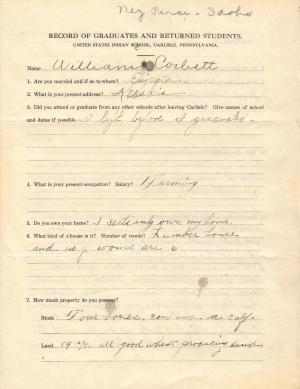 Nez Perce - Idaho
RECORD OF GRADUATES AND RETURNED STUDENTS.
UNITED STATES INDIAN SCHOOL, CARLISLE, PENNSYLVANIA.
Name William Corbett
1. Are you married and if so to whom?
2. What is your present address? Kooskia
3. Did you attend or graduate from any other schools after leaving Carlisle? Give names of school
and dates if possible. I left before I gravated.
4. What is your present occupation? Salary? Farming
5. Do you own your home? I certinly own my home.
6. What kind of a house is it? Number of rooms? Lumber house
and no of wooms are 6
7. How much property do you possess?
Stock Four horses, cow and a calf.
Land 89 a/c. all good wheat producing land.